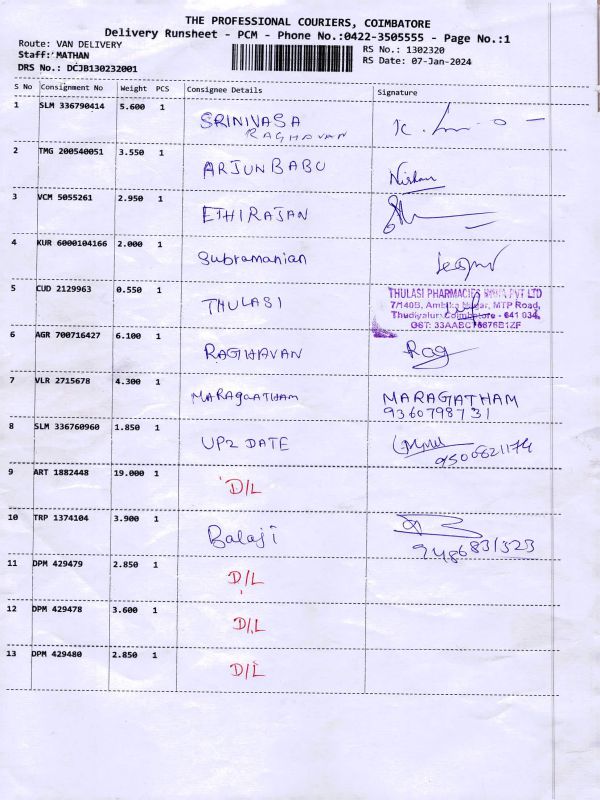 THE PROFESSIONAL COURIERS, COIMBATORE
Delivery Runsheet - PCM - Phone No.:0422-3505555 - Page No.:1
Route: VAN DELIVERY
RS No.: 1302320
Staff: MATHAN
RS Date: 07-Jan-2024
DRS No.: DCJB130232001
S No Consignment No Weight PCS Consignee Details Signature
1 SLM 336790414 5.600 1 SRINIVASA
RAGHAVAN
2 TMG 200540051 3.550 1 ARJUN BABU
3 VCM 5055261 2.950 1 ETHIRAJAN
4 KUR 6000104166 2.000 1 Subramanian
5 CUD 2129963 0.550 1 THULASI
THULASI PHARMACIES INDIA PVT LTD
7/140B, Ambika Nagar, MTP Road,
Thudiyalur, Coimbatore - 641 034.
6 AGR 700716427 6.100 1 RAGHAVAN Rag
7 VLR 2715678 4.300 1 MARAGAATHAM MARAGATHAM
9360798731
8 SLM 336760960 1.850 1 UP2 DATE
9 ART 1882448 19.000 1 D/L
10 TRP 1374104 3.900 1 Balaji
9486831323
11 DPM 429479 2.850 1 D/L
12 DPM 429478 3.600 1 D/L
13 DPM 429480 2.850 1 D/L